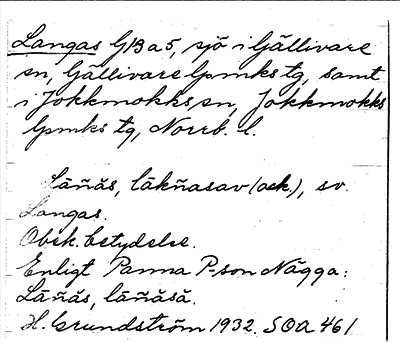 Langas G13a5, sjö i Gällivare
sn, Gällivare lpmks tg, samt
i Jokkmokks sn, Jokkmokks
lpmks tg, Norrb. l.
Láŋas, (ack.), sv.
Langas.
Obek. betydelse.
Enligt Panna P-son Nägga:
H. Grundström 1932. SOA 461